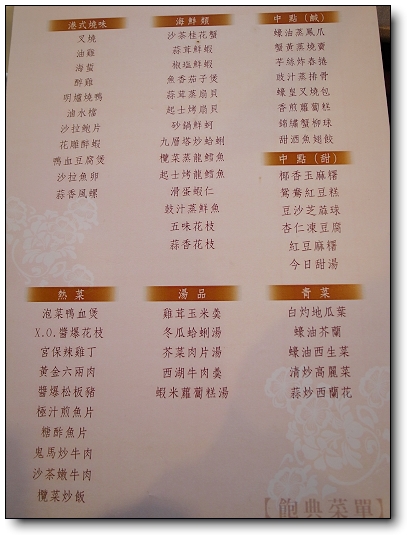 港式燒味
叉燒
油雞
海蜇
醉雞
明爐燒鴨
滷水檔
沙拉鮑片
花雕醉蝦
鴨血豆腐煲
沙拉魚卵
蒜香風螺
海鮮類
沙茶桂花蟹
蒜茸鮮蝦
椒塩鮮蝦
魚香茄子煲
蒜茸蒸扇貝
起士烤扇貝
砂鍋鮮蚵
九層塔炒蛤蜊
欖菜蒸龍鱈魚
起士烤龍鱈魚
滑蛋蝦仁
豉汁蒸鮮魚
五味花枝
蒜香花枝
中點(鹹)
蠔油蒸鳳爪
蟹黃蒸燒賣
芋絲炸春捲
豉汁蒸排骨
蠔皇叉燒包
香煎蘿蔔糕
錦繡蟹柳球
甜酒魚翅餃
中點(甜)
椰香玉麻糬
鴛鴦紅豆糕
豆沙芝蔴球
杏仁凍豆腐
紅豆麻糬
今日甜湯
熱菜
泡菜鴨血煲
X.O.醬爆花枝
宮保辣雞丁
黃金六兩肉
醬爆松板豬
極汁煎魚片
糖酢魚片
鬼馬炒牛肉
沙茶嫩牛肉
欖菜炒飯
湯品
雞茸玉米羮
冬瓜蛤蜊湯
芥菜肉片湯
西湖牛肉羮
蝦米蘿蔔糕湯
青菜
白灼地瓜葉
蠔油芥蘭
蠔油西生菜
清炒高麗菜
蒜炒西蘭花
【飽典菜單】